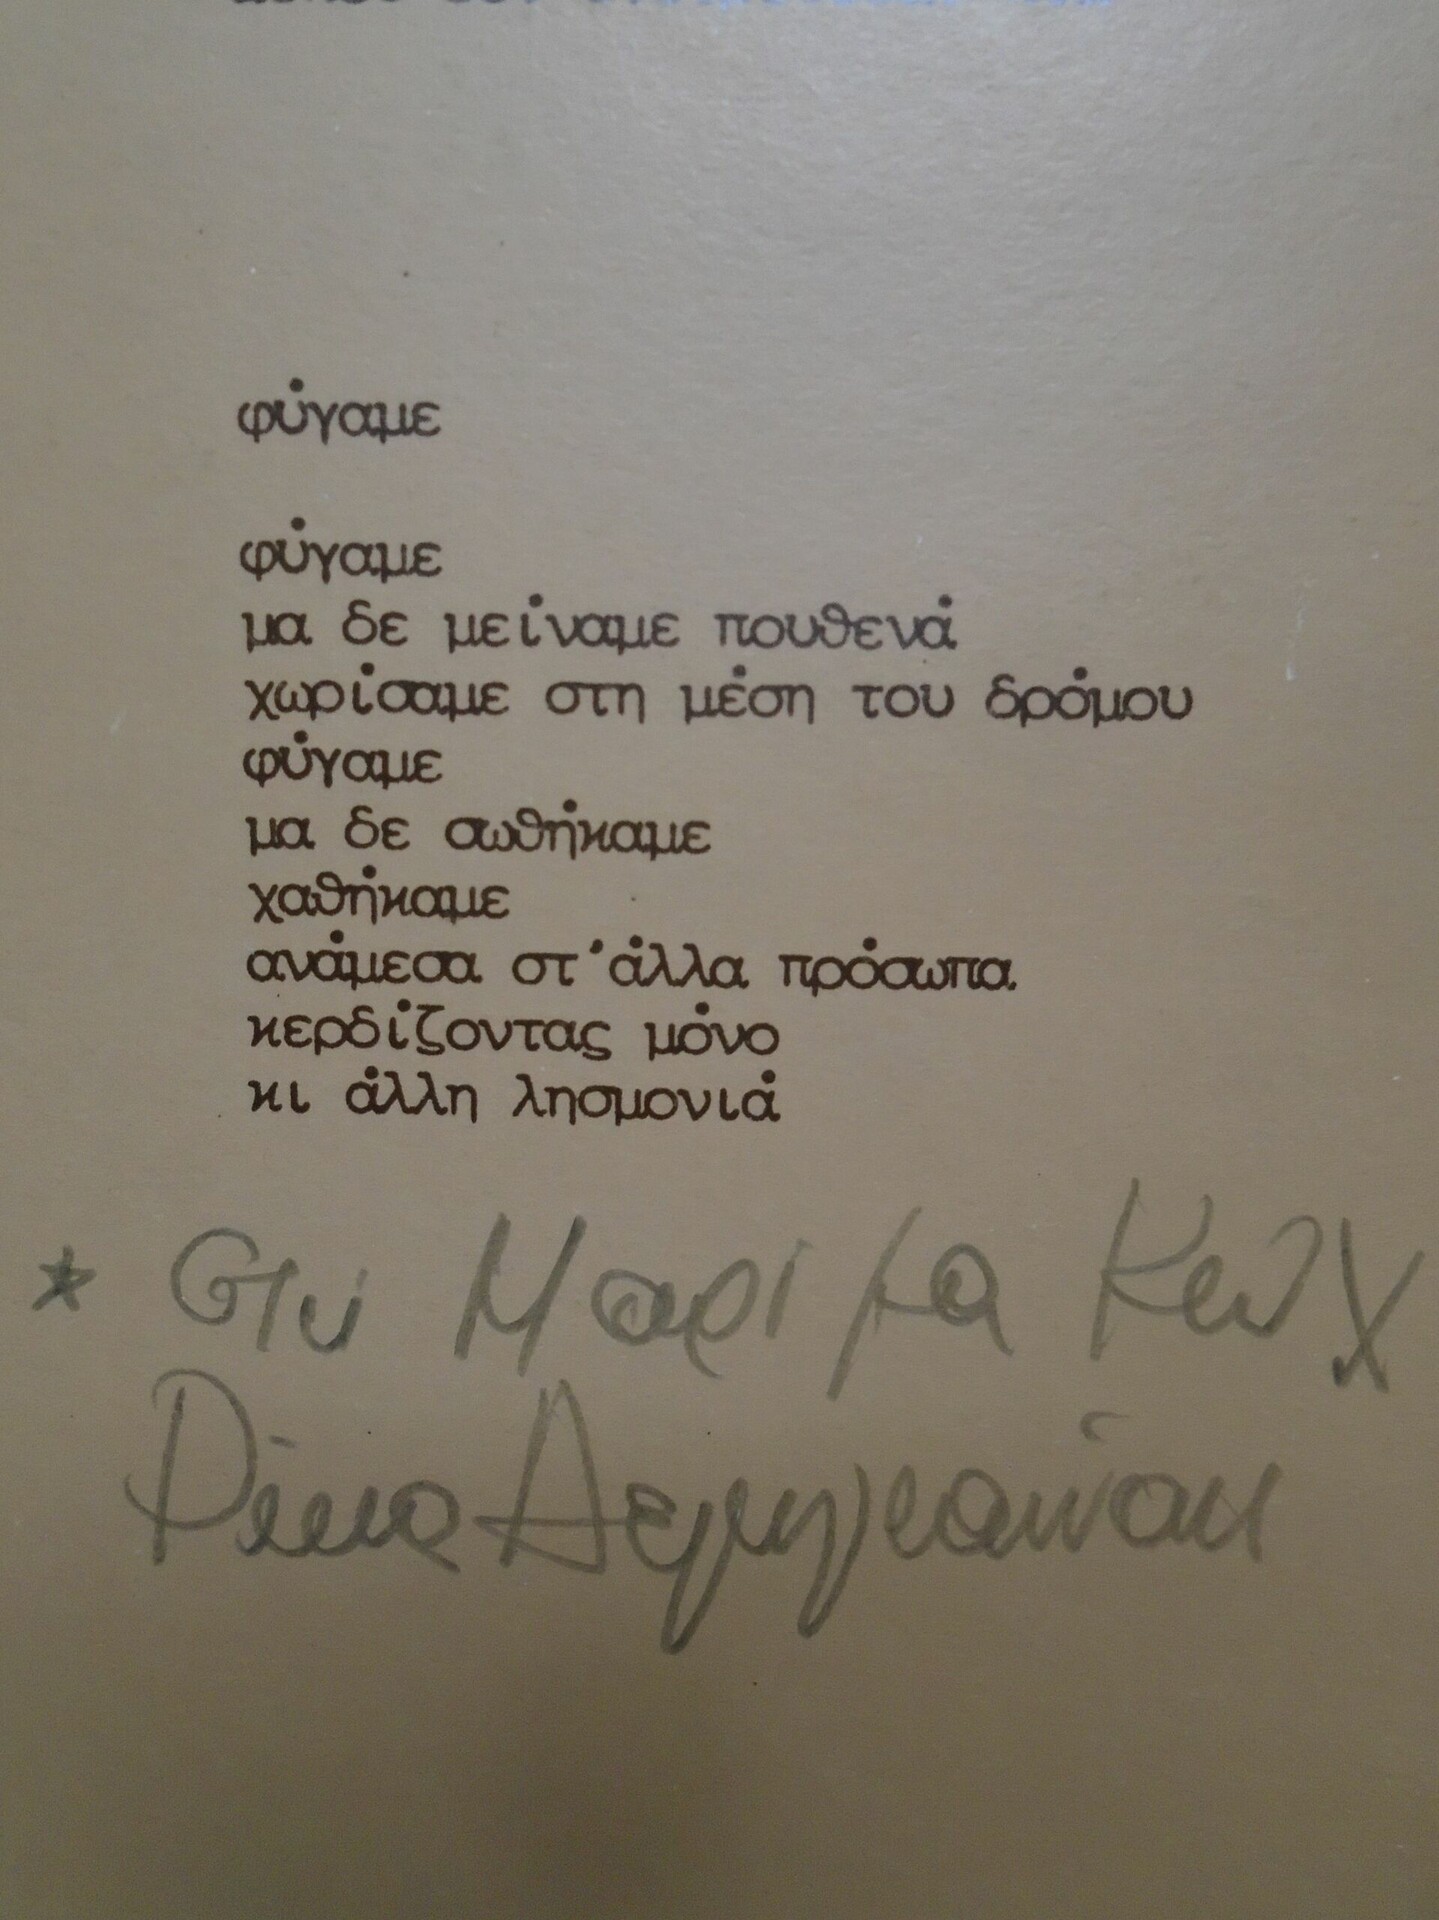 φύγαμε
φύγαμε
μα δε μείναμε πουθενά
χωρίσαμε στη μέση του δρόμου
φύγαμε
μα δε σωθήκαμε
χαθήκαμε
ανάμεσα στ'άλλα πρόσωπα
κερδίζοντας μόνο
κι άλλη λησμονιά
* Στη Μαρίζα Κωχ